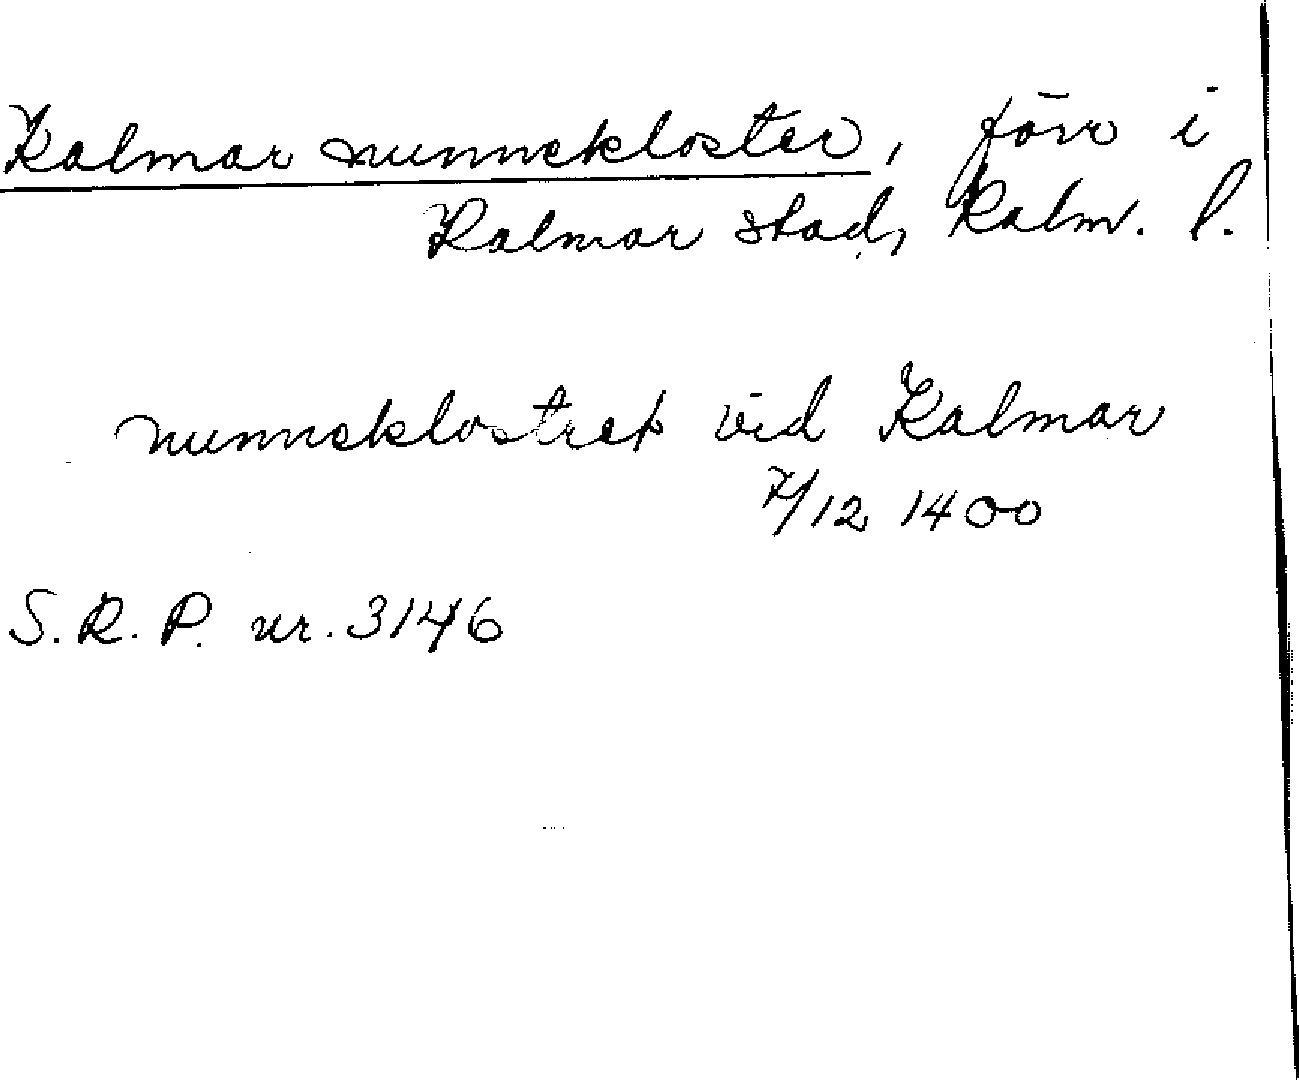 Kalmar nunnekloster, förr i
Kalmar stad, Kalm. l.
nunneklostret vid Kalmar
7/12 1400
S. R. P. nr. 3146